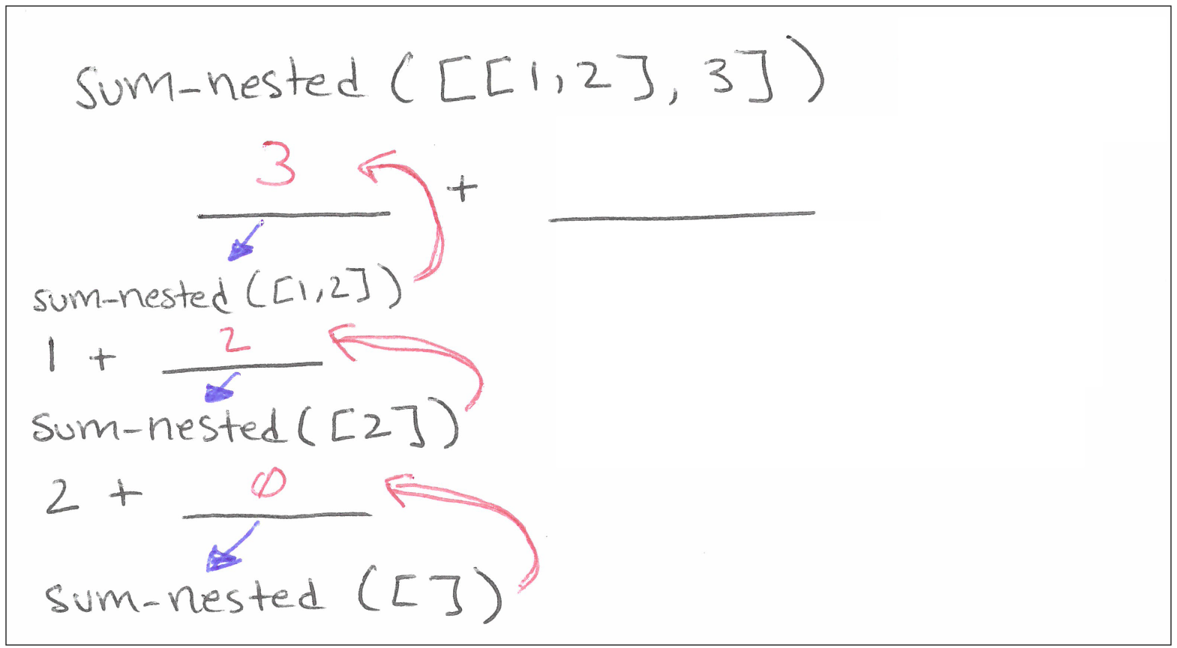 sum-nested([[1,2], 3])
3 +
sum-nested([1,2])
1 + 2
sum-nested([2])
2 + 0
sum-nested([])